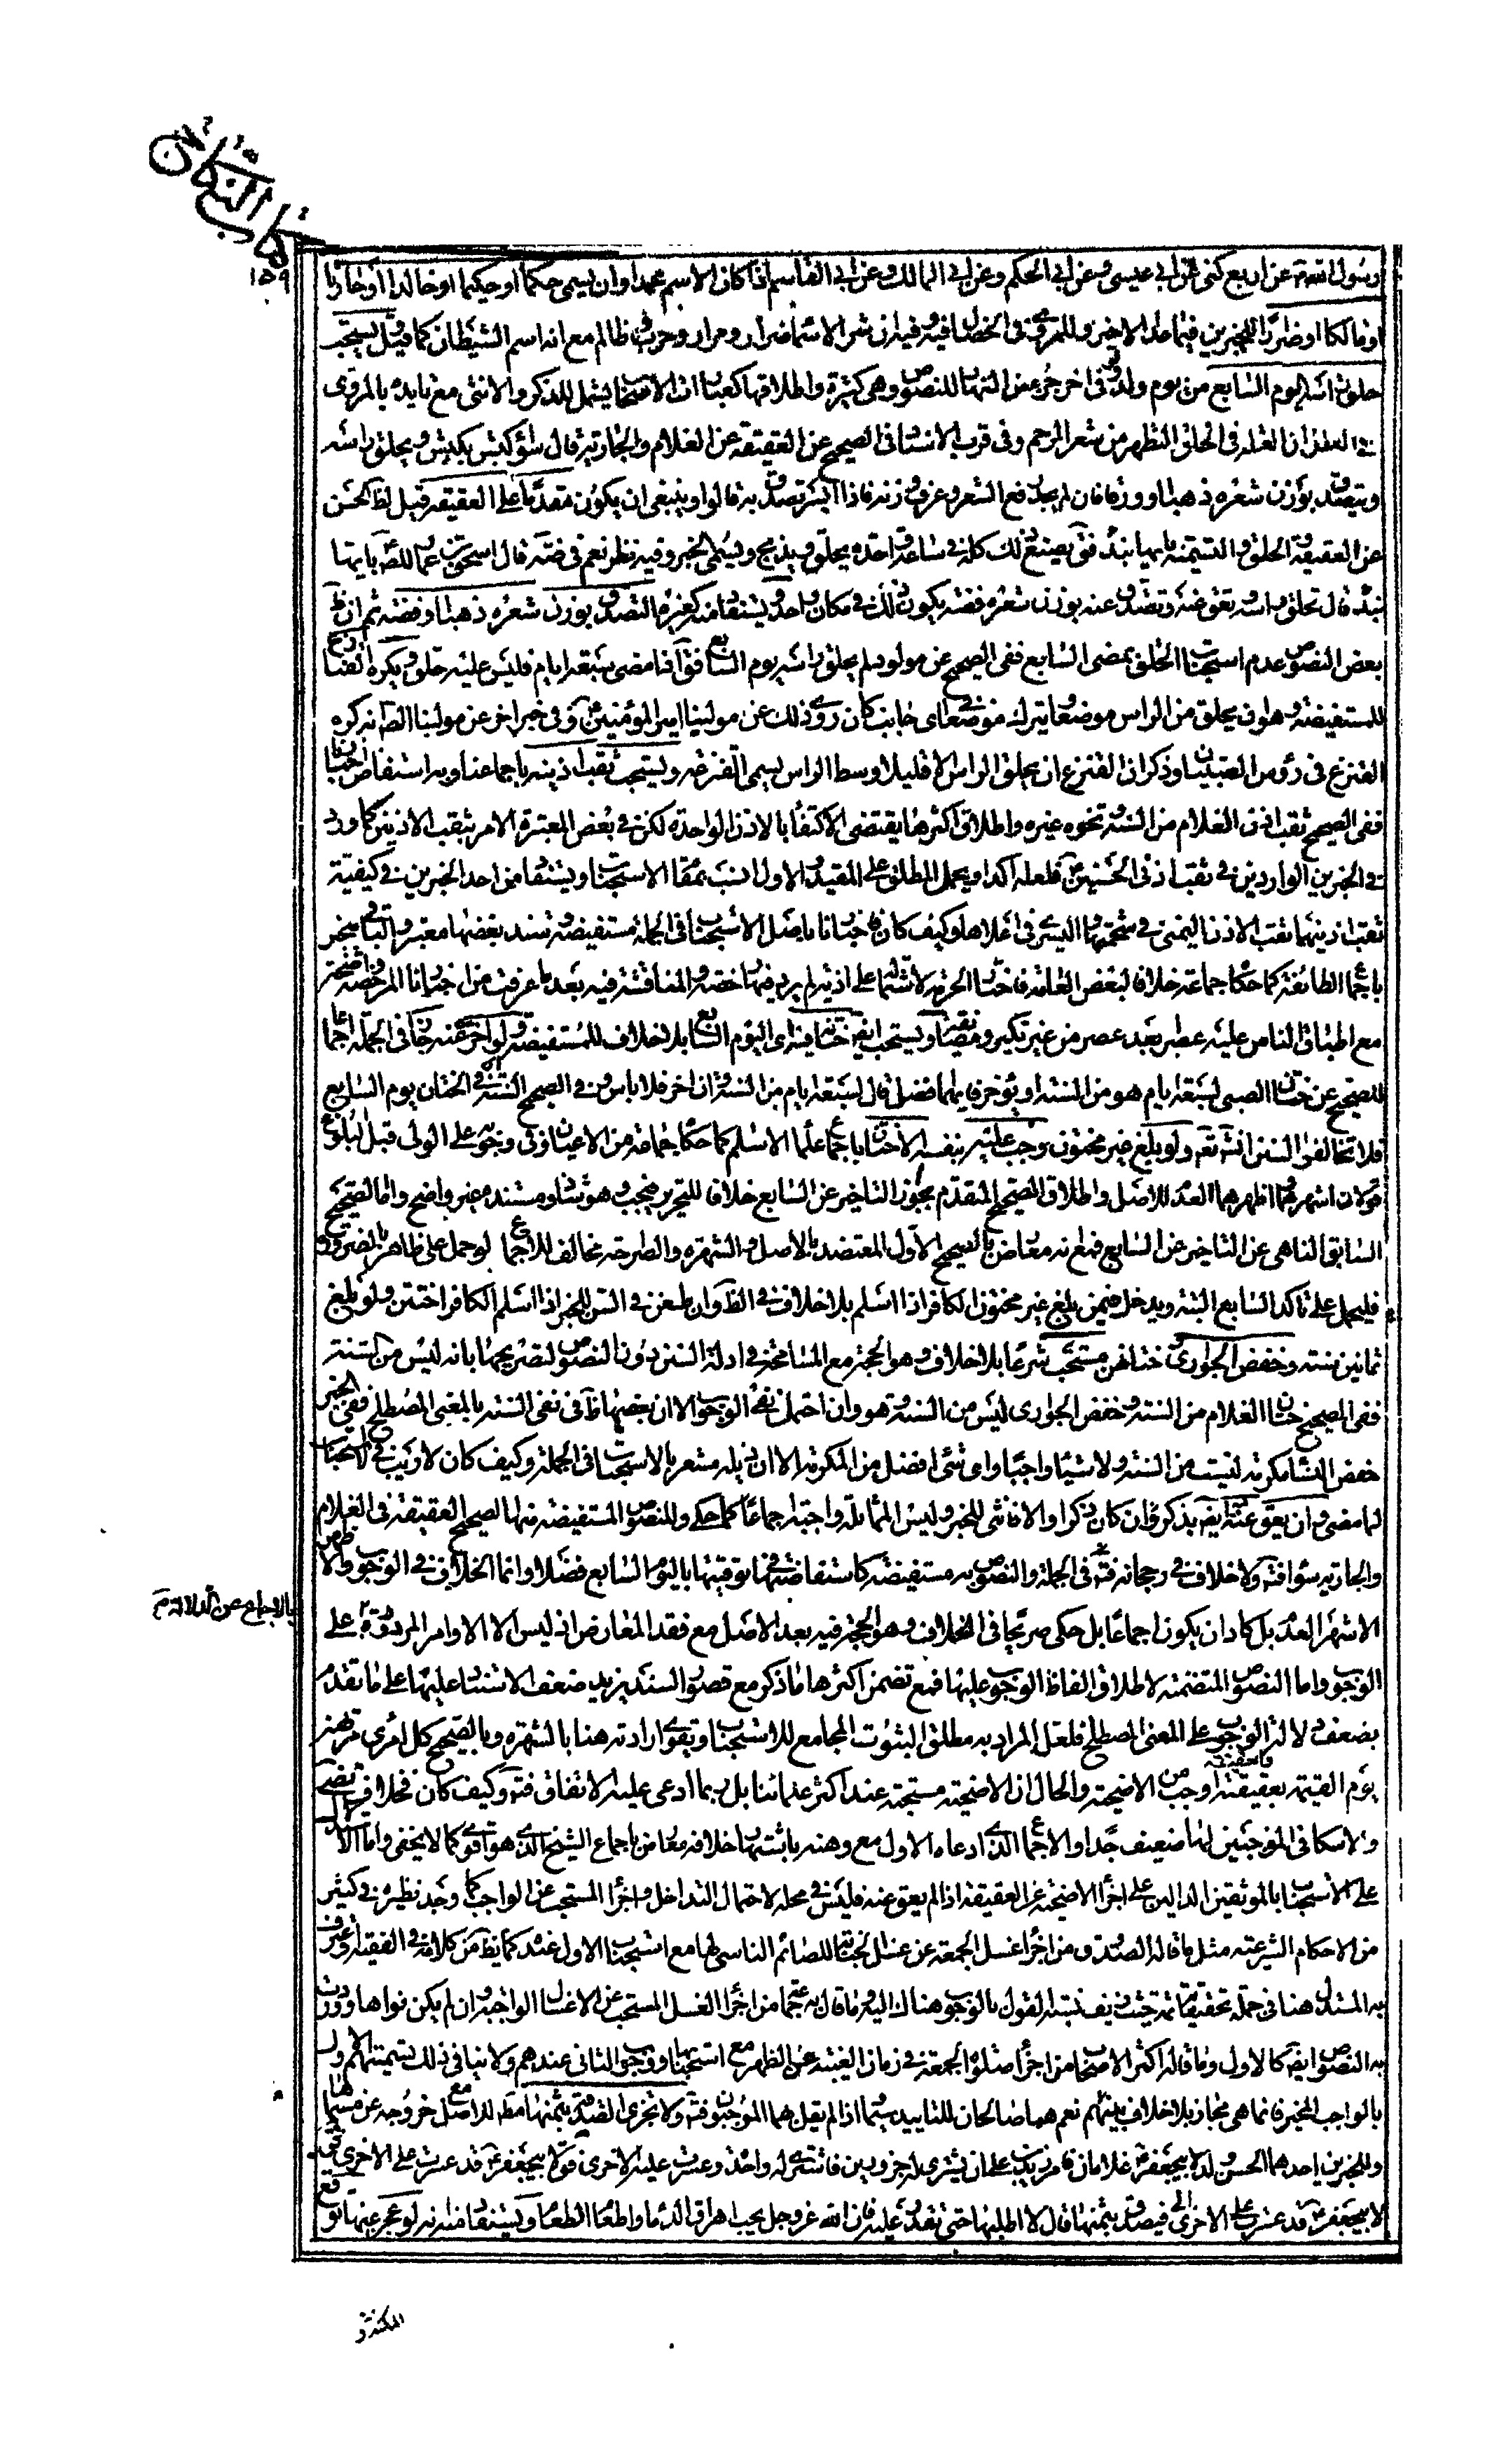 كتاب النكاح
١٥٩
رسول الله ص عن اربع كنى عن ابى عيسى وعن ابى الحكم وعن ابى المالك وعن ابى القاسم اذا كان الاسم محمدا وان يسمى حكما او حكيما او خالدا او حارثا
او مالكا او ضرارا للخبرين فيما عدا الاخير وللمروى فى الخصال فيه وفيه ان شر الاسماء ضرار ومرار وحرب وظالم مع انه اسم الشيطان كما قيل ويستحب
حلق راسه اليوم السابع من يوم ولد ولو فى اخر جزء من النهار للنصوص وهى كثيرة واطلاقها كعبارات الاصحاب يشمل الذكر والانثى مع تاييده بالمروى
ان العلة فى الحلق التطهر من شعر الرحم وفى قرب الاسناد فى الصحيح عن العقيقة عن الغلام والجارية قال سواء كبش كبش ويحلق راسه
ويتصدق بوزن شعره ذهبا او ورقا فان لم يجد رفع الشعر وعرف وزنه فاذا ايسر تصدق به قالوا وينبغى ان يكون مقدما على العقيقة قيل لظ الحسن
عن العقيقة والحلق والتسمية بايها يبدء فق يصنع ذلك كله فى ساعة واحدة يحلق ويذبح ويسمى الخبر وفيه نظر نعم فى قال اسحق بن عمار للص ع بايها
نبدء قال تحلق راسه وتعق عنه وتصدق عنه بوزن شعره فضة يكون ذلك فى مكان واحد ويستفاد منه كغيره التصدق بوزن شعره ذهبا او فضة ثم ان ظ
بعض النصوص عدم استحباب الحلق بمضى السابع ففى الصحيح عن مولود لم يحلق راسه يوم السابع فق اذا مضى سبعة ايام فليس عليه حلق ويكره القنازع
للمستفيضة وهو ان يحلق من الراس موضعا ويترك موضعا فى اى جانب كان روى ذلك عن مولينا امير المؤمنين ع وفى خبر اخر عن مولينا الص انه كره
القنزع فى رؤس الصبيان وذكر ان القنزع ان يحلق الراس الا قليلا وسط الراس يسمى القنزعة ويستحب ثقب اذنيه باجماعنا وبه استفاض اخبارنا
ففى الصحيح ثقب اذن الغلام من السنة ونحوه غيره واطلاق اكثرها يقتضى الاكتفاء بالاذن الواحدة لكن فى بعض المعتبرة الامر بثقب الاذنين كما ورد
فى الخبرين الواردين فى ثقب اذنى الحسنين ع فلعله اكد او يحمل المطلق على المقيد والاول انسب بمقام الاستحباب ويستفاد من احد الخبرين فى كيفية
ثقب اذنيهما ثقب الاذن اليمنى فى شحمتها واليسرى فى اعلاها وكيف كان فاخبارنا باصل الاستحباب فى الجملة مستفيضة وسند بعضها معتبر والباقى منجبر
باجماع الطائفة كما حكاه جماعة خلافا لبعض العامة فاختار الحرمة لاشتماله على اذية لم يرد فيها رخصة والمناقشة فيه بعد ما عرفت من اخبارنا المرخصة واضحة
مع اطباق الناس عليه عصرا بعد عصر من غير نكير ويستحب ايضا ختانه فيه اى اليوم السابع بلا خلاف للمستفيضة ولو اخر عنه جاز فى الجملة اجماعا
للصحيح عن ختان الصبى لسبعة ايام هو من السنة او يؤخر فايهما افضل قال لسبعة ايام من السنة وان اخر فلا باس وفى الصحيح السنة فى الختان يوم السابع
فلا تخالف السنن انشاء الله تعالى ولو بلغ غير مختون وجب عليه بنفسه الاختتان باجماع علماء الاسلام كما حكاه جماعة من الاعيان وفى وجوبه على الولى قبل البلوغ
قولان اشهرهما واظهرهما العدم للاصل واطلاق الصحيح المتقدم بجواز التاخير عن السابع خلافا للتحرير فيجب وهو شاذ ومستنده غير واضح واما الصحيح
السابق الناهى عن التاخير عن السابع فمع انه معارض بالصحيح الاول المعتضد بالاصل والشهرة والطرحة مخالف للاجماع لو حمل على ظاهره بالضرورة
فليحمل على تاكد السابع البتة ويدخل فيمن بلغ غير مختون الكافر اذا اسلم بلا خلاف فى الظ وان طعن فى السن للخبر اذا اسلم الكافر اختتن ولو بلغ
ثمانين سنة وخفض الجوارى وختانهن مستحب شرعا بلا خلاف وهو الحجة مع المسامحة فى ادلة السنن دون النصوص لتصريحها بانه ليس من السنة
ففى الصحيح ختان الغلام من السنة وخفض الجوارى ليس من السنة وهو وان احتمل نفى الوجوب الا ان بعضها ظ فى نفى السنة بالمعنى المصطلح ففى الخبر
خفض النساء مكرمة ليست من السنة ولا شيئا واجبا واى شئ افضل من المكرمة الا ان ذيله مشعر بالاستحباب فى الجملة وكيف كان لا ريب فى الاستحباب
لما مضى وان يعق عنه ايضا بذكر وان كان ذكرا والا فانثى للخبر وليس المماثلة واجبة اجماعا كما حكى وللنصوص المستفيضة منها الصحيح العقيقة فى الغلام
والجارية سواء ولا خلاف فى رجحانه فى الجملة والنصوص به مستفيضة كاستفاضتها فى توقيتها باليوم السابع فضلا وانما الخلاف فى الوجوب والاظهر
الاشهر العدم بل كاد ان يكون اجماعا بل حكى صريحا فى الخلاف وهو الحجة فيه بعد الاصل مع فقد المعارض اذ ليس الا الاوامر المردودة على
بالاجماع عن الدلالة م
الوجوب واما النصوص المتضمنة لاطلاق الفاظ الوجوب عليها فمع تضمن اكثرها ما ذكر مع قصور السند يزيد ضعف الاستناد عليها على ما تقدم
بضعف دلالة الوجوب على المعنى المصطلح فلعل المراد به مطلق الثبوت المجامع للاستحباب ويقوى ارادته هنا بالشهرة وبالصحيح كل امرئ مرتهن
يوم القيمة بعقيقته والعقيقة اوجب من الاضحية والحال ان الاضحية مستحبة عند اكثر علمائنا بل ربما ادعى عليه الاتفاق وكيف كان فخلاف المرتضى
والاسكافى الموجبين لها ضعيف جدا والاجماع الذى ادعاه الاول مع وهنه باشتهار خلافه معارض باجماع الشيخ الذى هو اقوى كما لا يخفى واما الاستدلال
على الاستحباب بالموثقين الدالين على اجزاء الاضحية عن العقيقة اذا لم يعق عنه فليس فى محله لاحتمال التداخل واجزاء المستحب عن الواجب كما وجد نظيره فى كثير
من الاحكام الشرعية مثل ما قاله الصدوق من اجزاء غسل الجمعة عن غسل الجنابة للصائم الناسى لها مع استحباب الاول عنده كما يظ من كلامه فى الفقيه واعترف
به المستدل هنا فى جملة تحقيقاته حيث زيف نسبة القول بالوجوب هناك اليه وما قال به جماعة من اجزاء الغسل المستحب عن الاغسال الواجبة وان لم يكن نواها ووردت
به النصوص ايضا كالاول وما قاله اكثر الاصحاب من اجزاء صلوة الجمعة فى زمان الغيبة عن الظهر مع استحبابها ووجوب الثانى عندهم ولا ينافى ذلك تسميتهم الاول
بالواجب المخير فانما هى مجاز بلا خلاف بينهم نعم هما صالحان للتاييد سيما اذا لم يقل بهما الموجبون ولا تجزى الصدقة بثمنها مط للاصل مع خروجه عن مسماها
وللخبرين احدهما الحسن ولد لابى جعفر ع غلامان فامر زيد بن على ان يشترى له جزورين فاشترى له واحدة وعسرت عليه الاخرى فق لابى جعفر ع قد عسرت على الاخرى
لابيجعفر ع قد عسرت على الاخرى فيصدق بثمنها قال لا اطلبها حتى تقدر عليه فان الله عز وجل يحب اهراق الدماء واطعام الطعام ويستفاد منه انه لو عجز عنها توقع
المكنة و